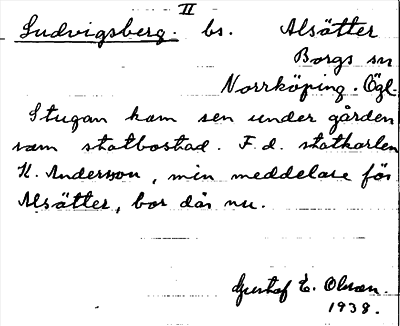 II
Ludvigsberg. bs. Alsätter
Borgs sn
Norrköping. Ögl.
Stugan kom sen under gården
som statbostad. F.d. statkarlen
K. Andersson, min meddelare för
Alsätter, bor där nu.
Gustaf E. Olsson.
1938.